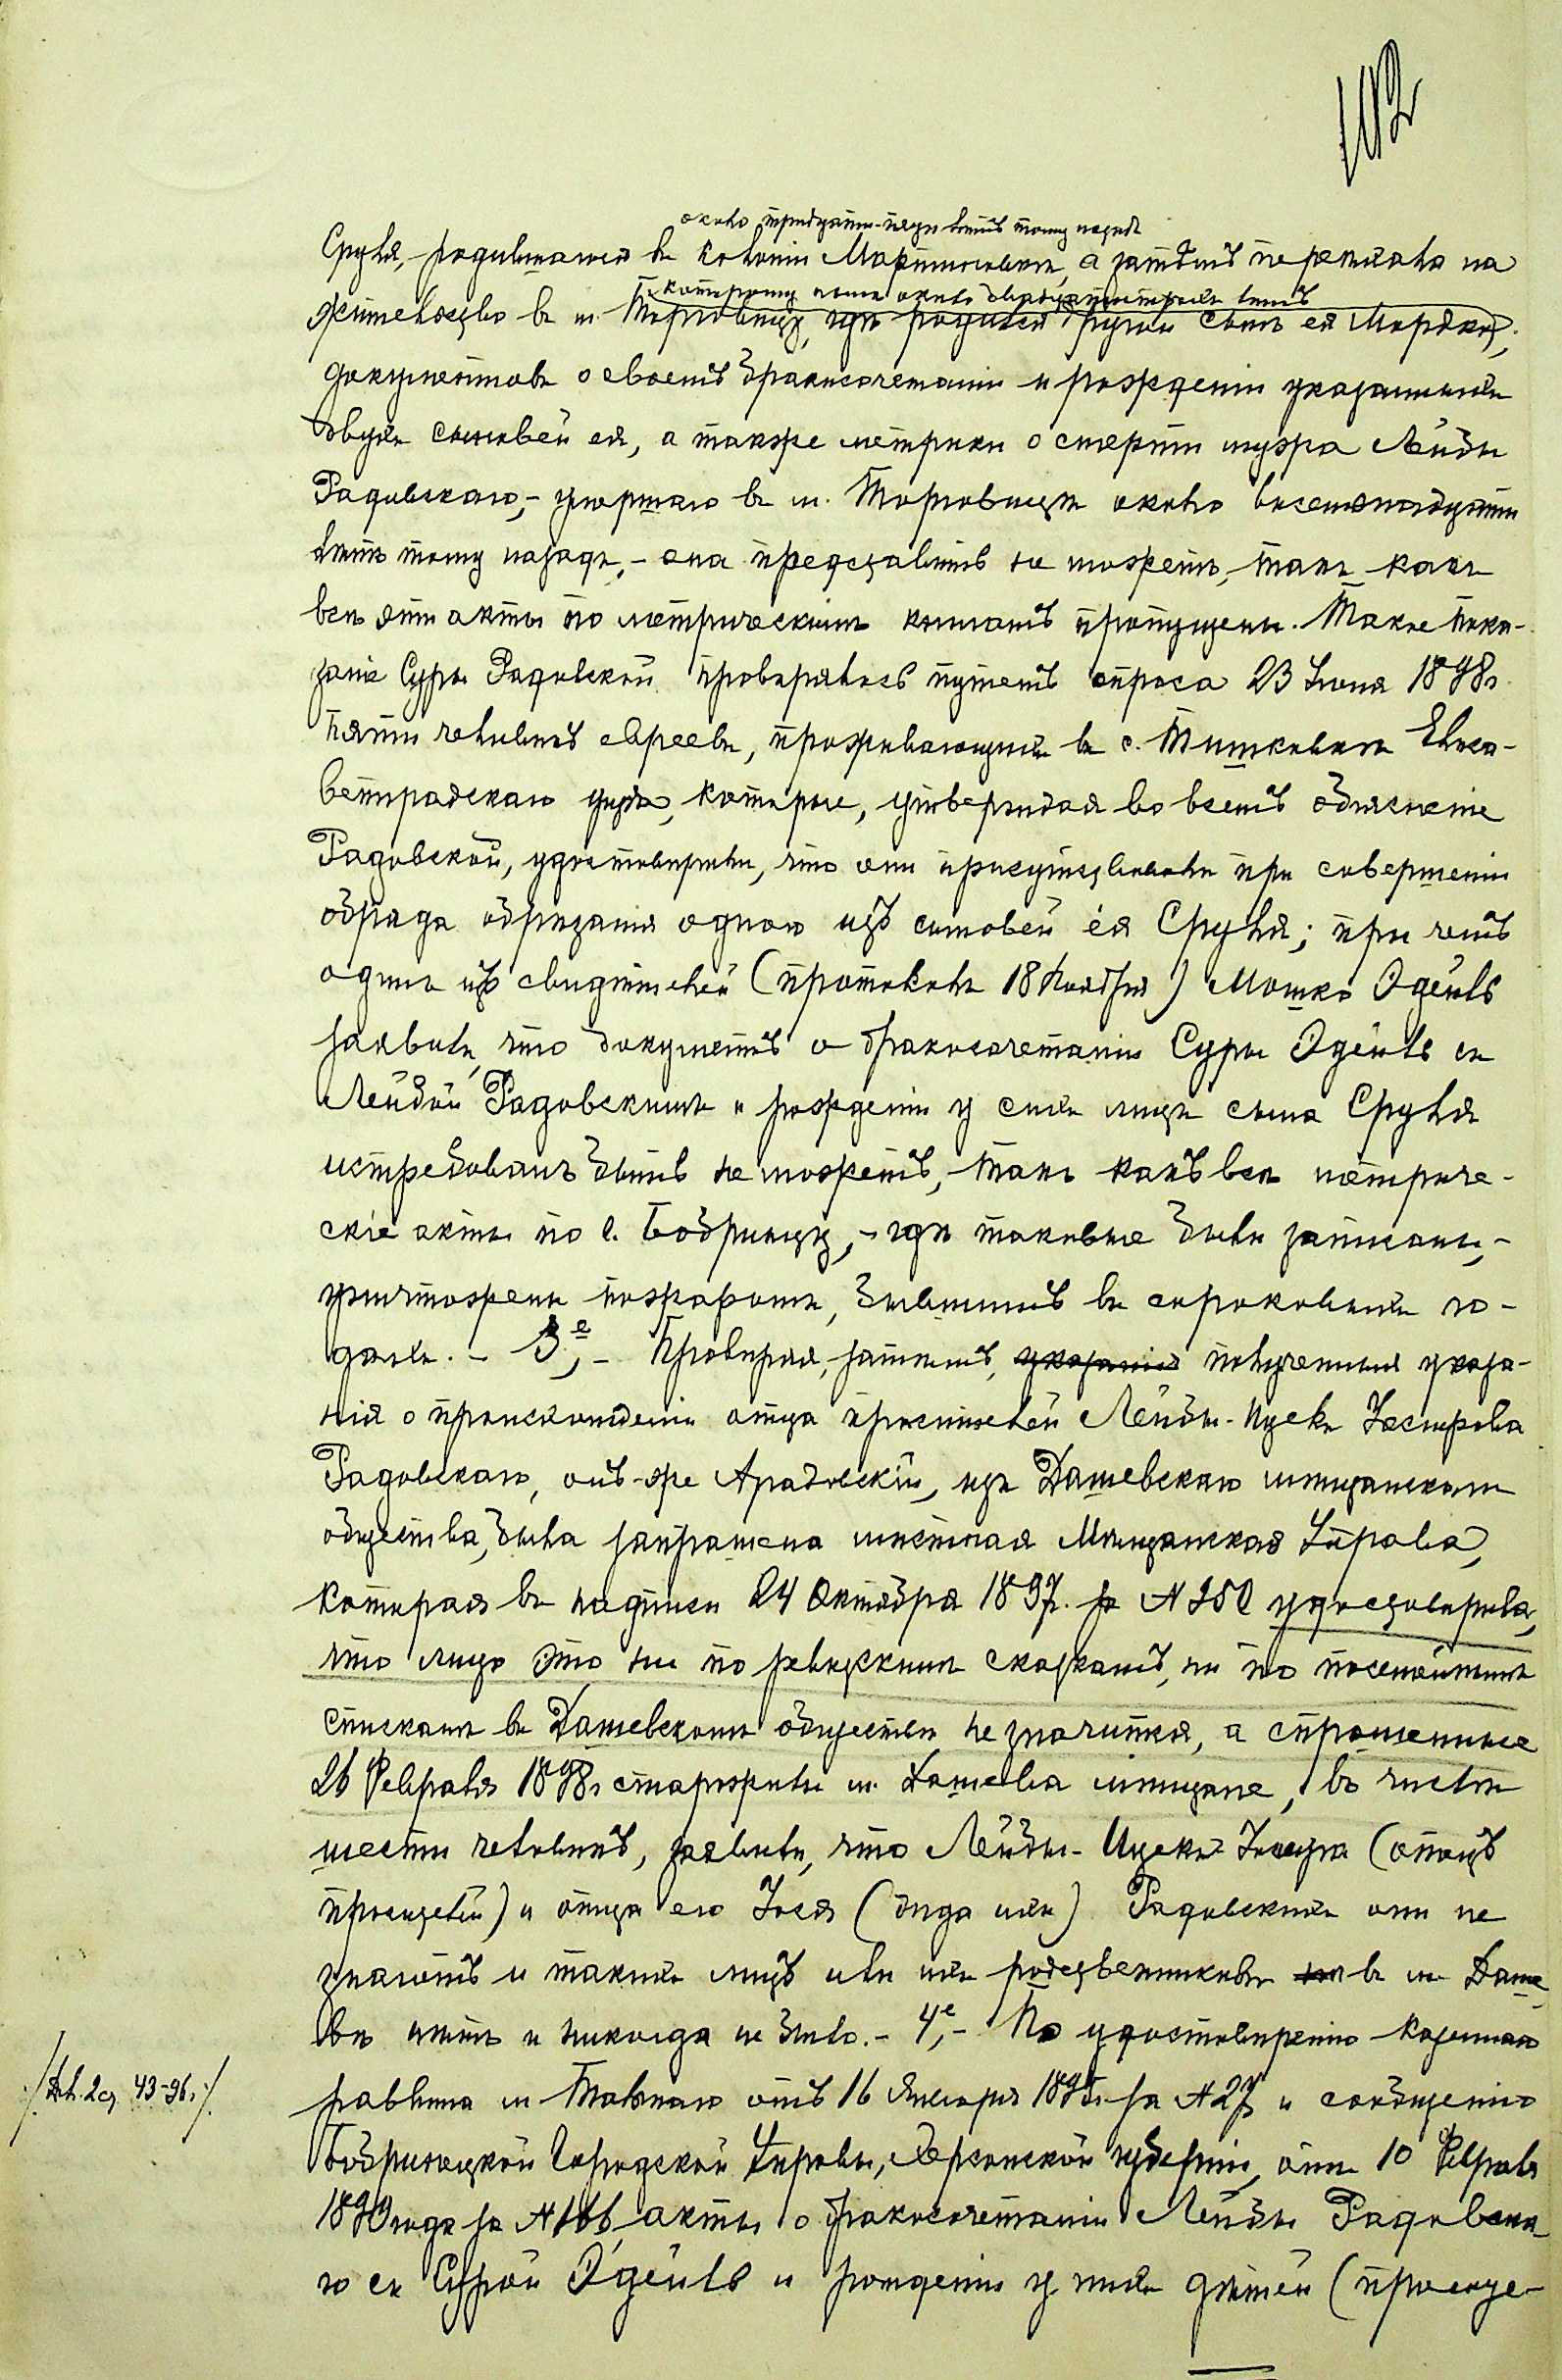 102
около тридцати-пяти лѣтъ тому назадъ
Сруля, родившагося въ колоніи Мартыновкѣ, а затѣмъ переѣхала на
которому нынѣ около двадцати трехъ лѣтъ
жительство въ м. Торговицу, гдѣ родился другой сынъ ея Мордко;
документовъ о своемъ бракосочетаніи и рожденіи указанныхъ
двухъ сыновей ея, а также метрики о смерти мужа Лейбы
Радовскаго,- умершаго въ м. Торговицѣ около восемнадцати
лѣтъ тому назадъ,- она представить не можетъ, такъ какъ
всѣ эти акты по метрическимъ книгамъ пропущены. Такое пока-
заніе Суры Радовской провѣрялось путемъ опроса 23 Іюня 1898 г.
пяти человѣкъ евреевъ, проживающихъ въ с. Тишковкѣ Елиса-
ветградскаго уѣзда, которые, утверждая во всемъ объясненіе
Радовской, удостовѣрили, что они присутствовали при совершеніи
обряда обрѣзанія одного изъ сыновей ея Сруля; при чемъ
одинъ изъ свидѣтелей (протоколъ 18 Ноября) Мошко Эдель
заявилъ, что документъ о бракосочетаніи Суры Эдель съ
Лейбой Радовскимъ и рожденіи у сихъ лицъ сына Сруля
истребованъ быть не можетъ, такъ какъ всѣ метриче-
скіе акты по с. Бобринцу,- гдѣ таковые были записаны,-
уничтожены пожаромъ, бывшимъ въ сороковыхъ го-
дахъ. - 3е,- Провѣряя, затѣмъ, указанія полученныя указа-
нія о происхожденіи отца просителей Лейбы-Ицека Іосирова
Радовскаго, онъ-же Арадовскій, изъ Дашевскаго мѣщанскаго
общества, была запрошена мѣстная Мѣщанская Управа,
которая въ надписи 24 Октября 1897 г. за № 250 удостовѣрила,
что лицо это ни по ревизскимъ сказкамъ, ни по посемейнымъ
спискамъ въ Дашевскомъ обществѣ не значится, а спрошенные
26 Февраля 1898 г. старожилы м. Дашева мѣщане, въ числѣ
шести человѣкъ, заявили, что Лейбы-Ицека Іосира (отецъ
просителей) и отца его Іося (дѣда ихъ) Радовскихъ они не
знаютъ и такихъ лицъ или ихъ родственниковъ въ м. Даше-
вѣ нѣтъ и никогда не было. - 4е,- По удостовѣренію казеннаго
/Дѣл. 2 ст. 43-96./
раввина м. Тальнаго отъ 16 Января 1895 г. за № 27 и сообщенію
Бобринецкой Городской Управы, Херсонской губерніи, отъ 10 Февраля
1890 года за № 166, акты о бракосочетаніи Лейбы Радовска-
го съ Сурой Эдель и рожденіи у нихъ дѣтей (просите-